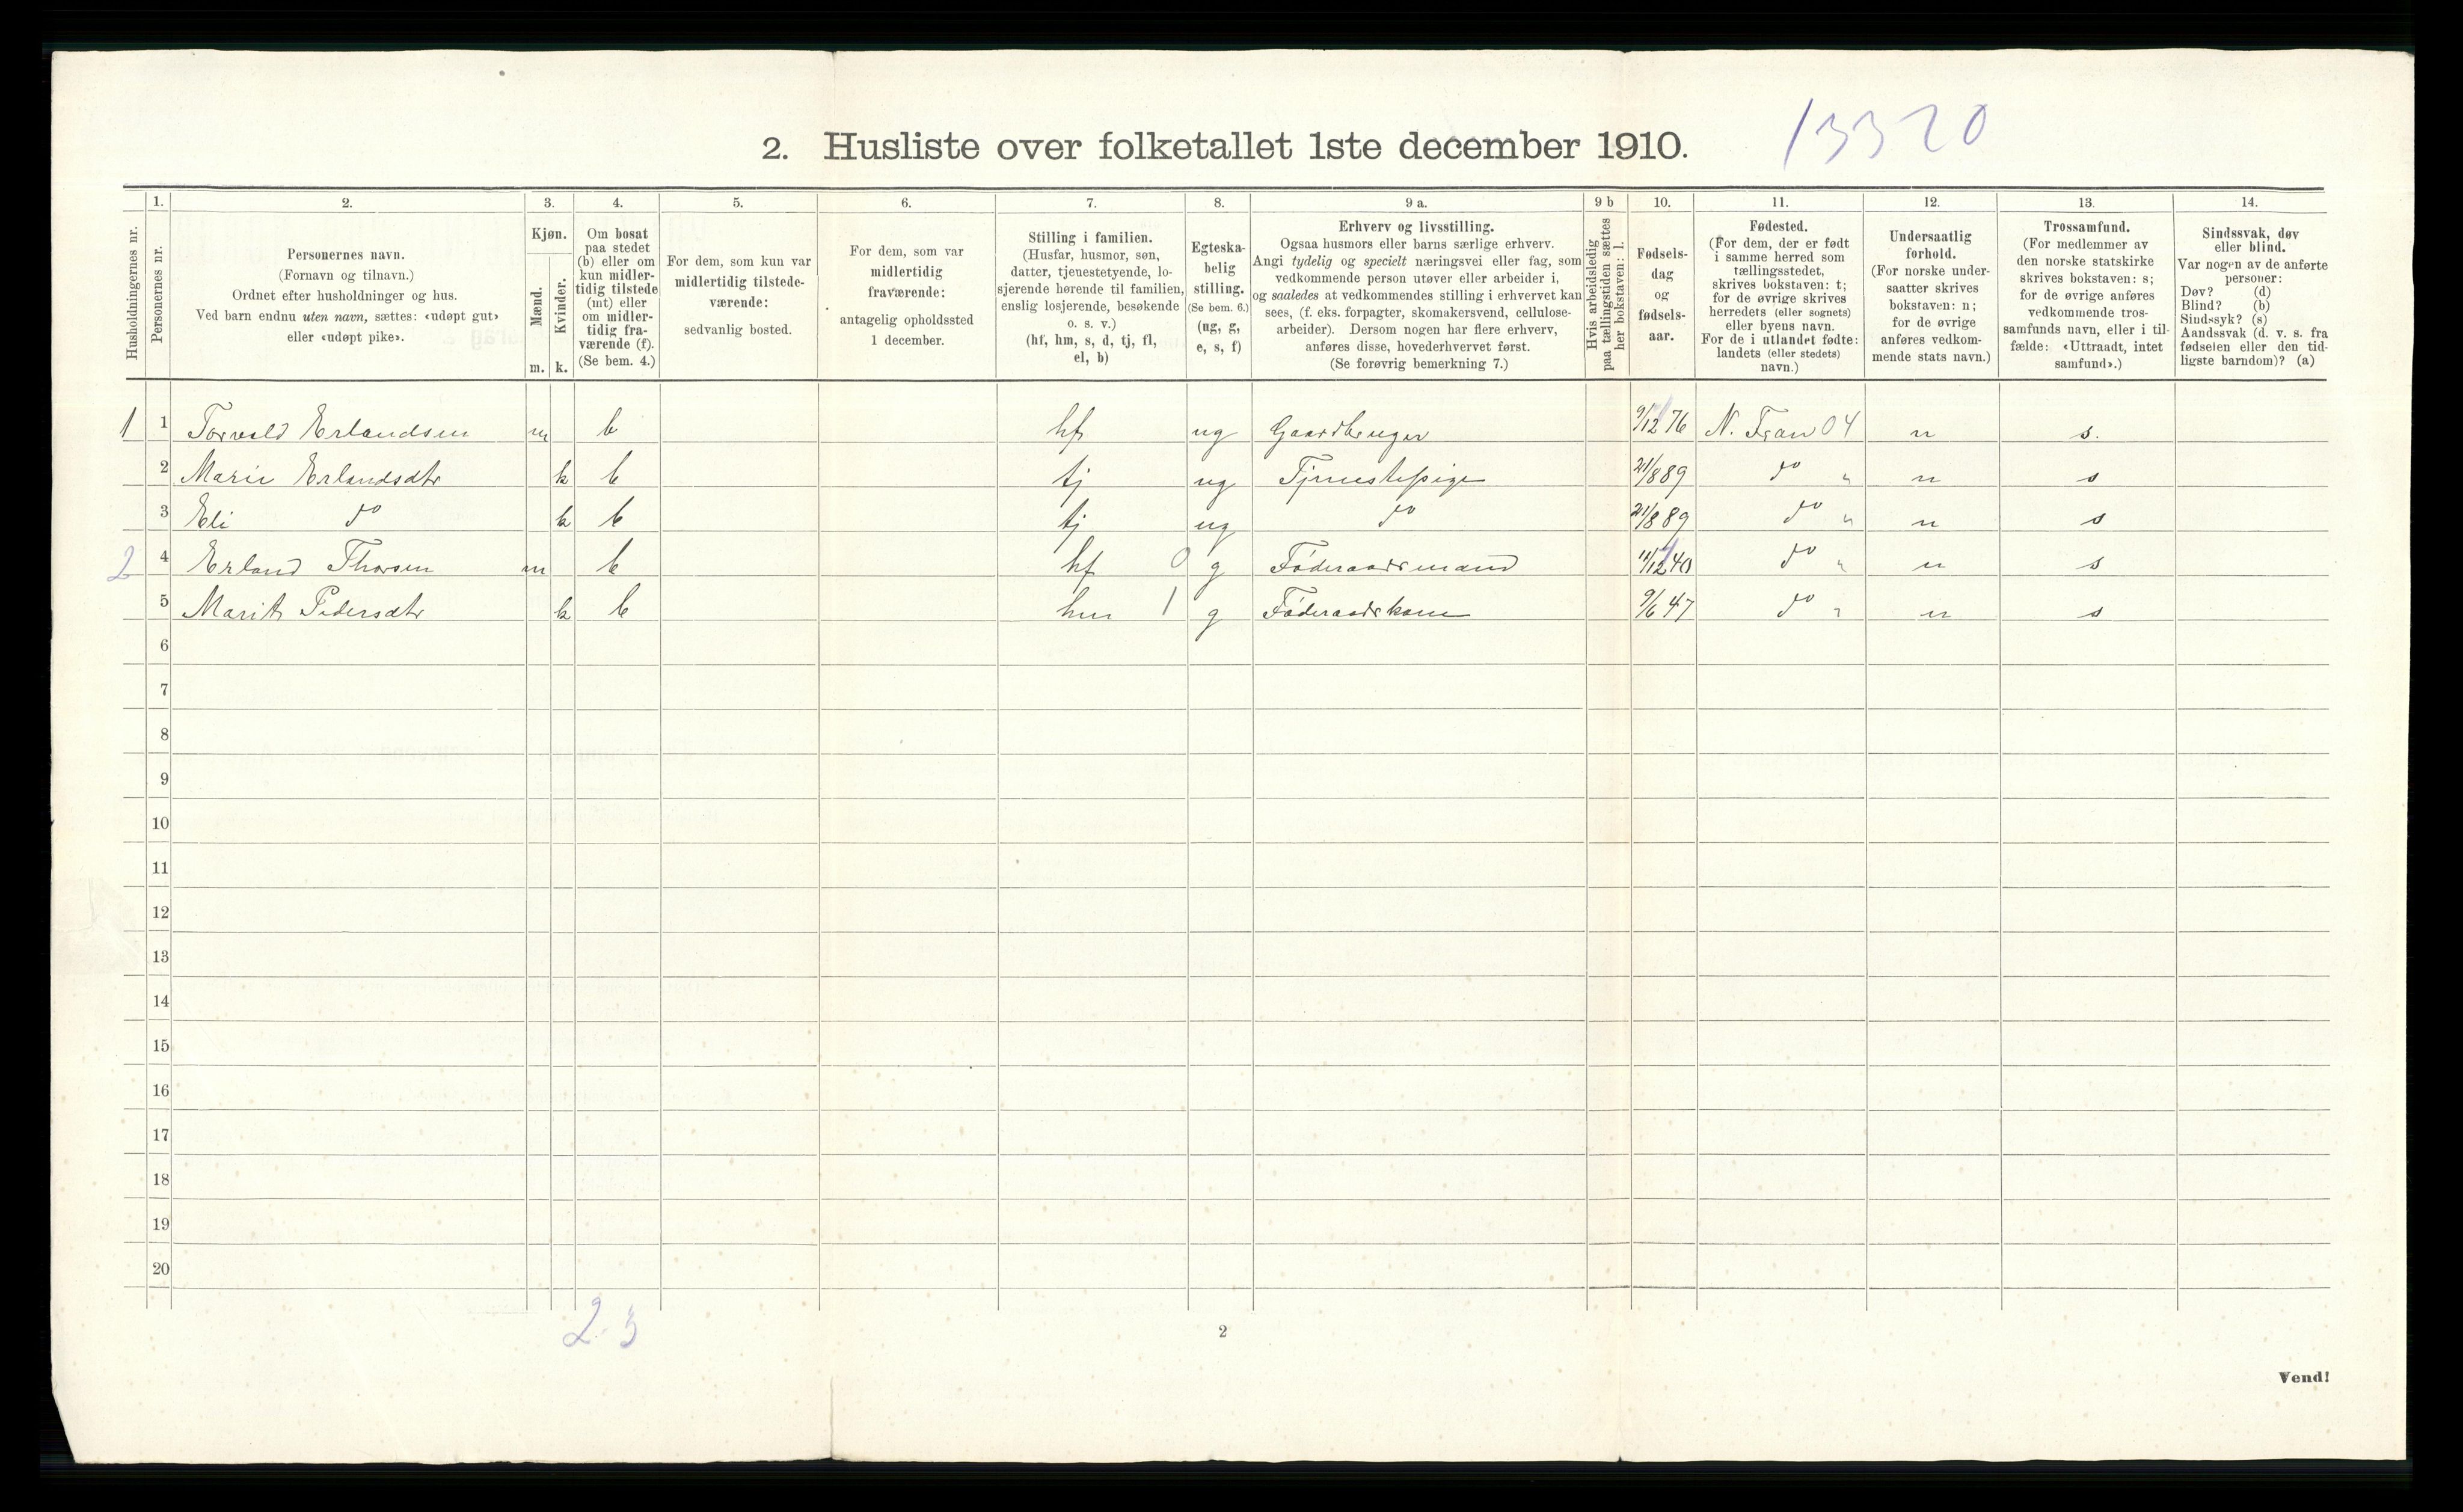 2. Husliste over folketallet 1ste december 1910.
13320
Husholdningernes nr.
1.
Personernes nr.
2.
Personernes navn.
(Fornavn og tilnavn.)
Ordnet efter husholdninger og hus.
Ved barn endnu uten navn, sættes: «udøpt gut»
eller «udøpt pike».
3.
Kjøn.
Mænd.
m.
Kvinder.
k.
4.
Om bosat
paa stedet
(b) eller om
kun midler-
tidig tilstede
(mt) eller
om midler-
tidig fra-
værende (f).
(Se bem. 4.)
5.
For dem, som kun var
midlertidig tilstede-
værende:
sedvanlig bosted.
6.
For dem, som var
midlertidig
fraværende:
antagelig opholdssted
1 december.
7.
Stilling i familien.
(Husfar, husmor, søn,
datter, tjenestetyende, lo-
sjerende hørende til familien,
enslig losjerende, besøkende
o. s. v.)
(hf, hm, s, d, tj, fl,
el, b)
8.
Egteska-
belig
stilling.
(Se bem. 6.)
(ug, g,
e, s, f)
9 a.
Erhverv og livsstilling.
Ogsaa husmors eller barns særlige erhverv.
Angi tydelig og specielt næringsvei eller fag, som
vedkommende person utøver eller arbeider i,
og saaledes at vedkommendes stilling i erhvervet kan
sees, (f. eks. forpagter, skomakersvend, cellulose-
arbeider). Dersom nogen har flere erhverv,
anføres disse, hovederhvervet først.
(Se forøvrig bemerkning 7.)
9 b
Hvis arbeidsledig
paa tællingstiden sættes
her bokstaven: l.
10.
Fødsels-
dag
og
fødsels-
aar.
11.
Fødested.
(For dem, der er født
i samme herred som
tællingsstedet,
skrives bokstaven: t;
for de øvrige skrives
herredets (eller sognets)
eller byens navn.
For de i utlandet fødte:
landets (eller stedets)
navn.)
12.
Undersaatlig
forhold.
(For norske under-
saatter skrives
bokstaven: n;
for de øvrige
anføres vedkom-
mende stats navn.)
13.
Trossamfund.
(For medlemmer av
den norske statskirke
skrives bokstaven: s;
for de øvrige anføres
vedkommende tros-
samfunds navn, eller i til-
fælde: «Uttraadt, intet
samfund».)
14.
Sindssvak, døv
eller blind.
Var nogen av de anførte
personer:
Døv? (d)
Blind? (b)
Sindssyk? (s)
Aandssvak (d. v. s. fra
fødselen eller den tid-
ligste barndom)? (a)
1 1 Torvald Erlandsen m b hf ug Gaardbruger 9/12 76 N. Fran 04 n s.
2 Marie Erlandsdtr k b tj ug Tjenestepige 21/8 89 do " n s
3 Eli do k b tj ug do 21/8 89 do " n s
2 4 Erland Thorsen m b hf 0 g Føderaadsmand 11/12 40 do " n s
5 Marit Pedersdtr k b hm 1 g Føderaadskone 9/6 47 do " n s
6
7
8
9
10
11
12
13
14
15
16
17
18
19
20
2. 3
2
Vend!